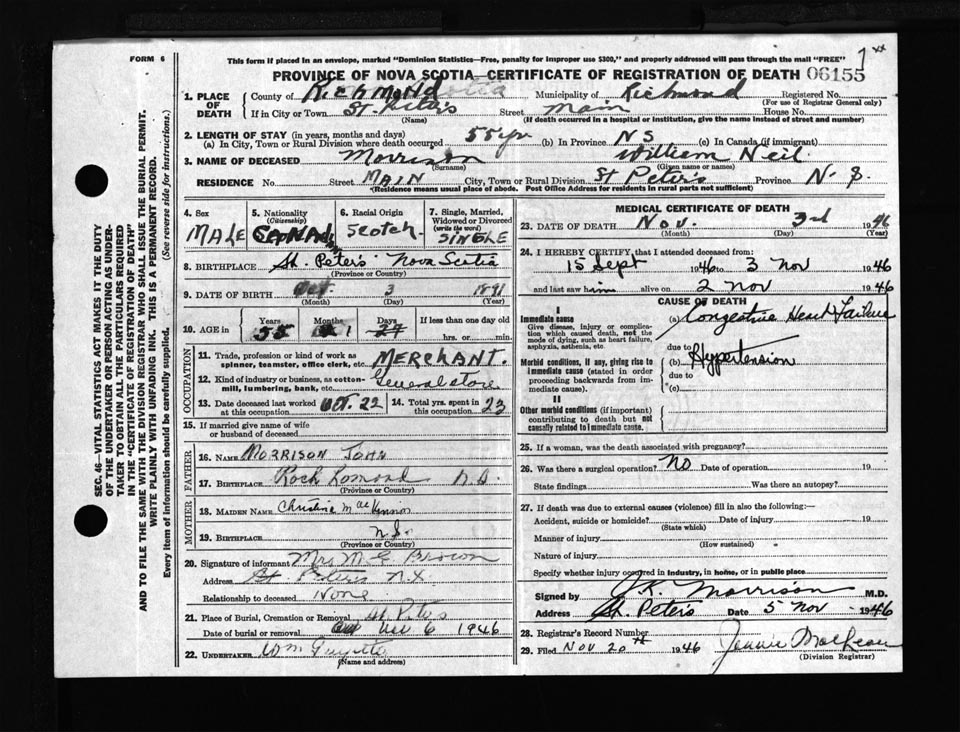 FORM 6
This form if placed in an envelope, marked "Dominion Statistics—Free, penalty for improper use $300," and properly addressed will pass through the mail "FREE"
PROVINCE OF NOVA SCOTIA—CERTIFICATE OF REGISTRATION OF DEATH 06155
1. PLACE OF DEATH County of Richmond Municipality of Richmond Registered No.
(For use of Registrar General only)
If in City or Town St. Peter's Street Main House No.
(Name) (If death occurred in a hospital or institution, give the name instead of street and number)
2. LENGTH OF STAY (in years, months and days)
(a) In City, Town or Rural Division where death occurred 55 yr (b) In Province NS (c) In Canada (if immigrant)
3. NAME OF DECEASED Morrison William Neil.
(Surname) (Given name or names)
RESIDENCE No. Street MAIN City, Town or Rural Division St Peter's Province N-S.
(Residence means usual place of abode. Post Office Address for residents in rural parts not sufficient)
4. Sex MALE
5. Nationality (Citizenship) CANADA
6. Racial Origin Scotch.
7. Single, Married, Widowed or Divorced (write the word) SINGLE
8. BIRTHPLACE St. Peter's Nova Scotia
(Province or Country)
9. DATE OF BIRTH Oct. 3 1891
(Month) (Day) (Year)
10. AGE in Years Months Days If less than one day old
55 1 hrs. or min.
OCCUPATION
11. Trade, profession or kind of work as spinner, teamster, office clerk, etc. MERCHANT.
12. Kind of industry or business, as cotton-mill, lumbering, bank, etc. General store
13. Date deceased last worked at this occupation OCT. 22
14. Total yrs. spent in this occupation 23
15. If married give name of wife or husband of deceased
FATHER
16. NAME MORRISON JOHN
17. BIRTHPLACE Loch Lomond N.S.
(Province or Country)
MOTHER
18. MAIDEN NAME Christine MacKinnon
19. BIRTHPLACE N.S.
(Province or Country)
20. Signature of informant Mrs M E Brown
Address St Peters N.S
Relationship to deceased None
21. Place of Burial, Cremation or Removal St. Peters
Date of burial or removal 6 1946
22. UNDERTAKER Wm
(Name and address)
MEDICAL CERTIFICATE OF DEATH
23. DATE OF DEATH Nov. 3rd 1946
(Month) (Day) (Year)
24. I HEREBY CERTIFY, that I attended deceased from:
15 Sept 1946 to 3 Nov 1946
and last saw him alive on 2 Nov 1946
CAUSE OF DEATH
I
Immediate cause
Give disease, injury or complication which caused death, not the mode of dying, such as heart failure, asphyxia, asthenia, etc.
(a) Congestive Heart Failure
due to
Morbid conditions, if any, giving rise to immediate cause (stated in order proceeding backwards from immediate cause).
(b) Hypertension
due to
(c)
II
Other morbid conditions (if important) contributing to death but not causally related to immediate cause.
25. If a woman, was the death associated with pregnancy?
26. Was there a surgical operation? No Date of operation 19
State findings Was there an autopsy?
27. If death was due to external causes (violence) fill in also the following:—
Accident, suicide or homicide? Date of injury 19
(State which)
Manner of injury
(How sustained)
Nature of injury
Specify whether injury occurred in industry, in home, or in public place
Signed by J.K. Morrison M.D.
Address St. Peter's Date 5 Nov 1946
28. Registrar's Record Number
29. Filed Nov 20 1946 Jennie MacLean
(Division Registrar)
SEC. 46—VITAL STATISTICS ACT MAKES IT THE DUTY
OF THE UNDERTAKER OR PERSON ACTING AS UNDER-
TAKER TO OBTAIN ALL THE PARTICULARS REQUIRED
IN THE "CERTIFICATE OF REGISTRATION OF DEATH"
AND TO FILE THE SAME WITH THE DIVISION REGISTRAR WHO SHALL ISSUE THE BURIAL PERMIT.
WRITE PLAINLY WITH UNFADING INK. THIS IS A PERMANENT RECORD.
Every item of information should be carefully supplied. (See reverse side for instructions.)